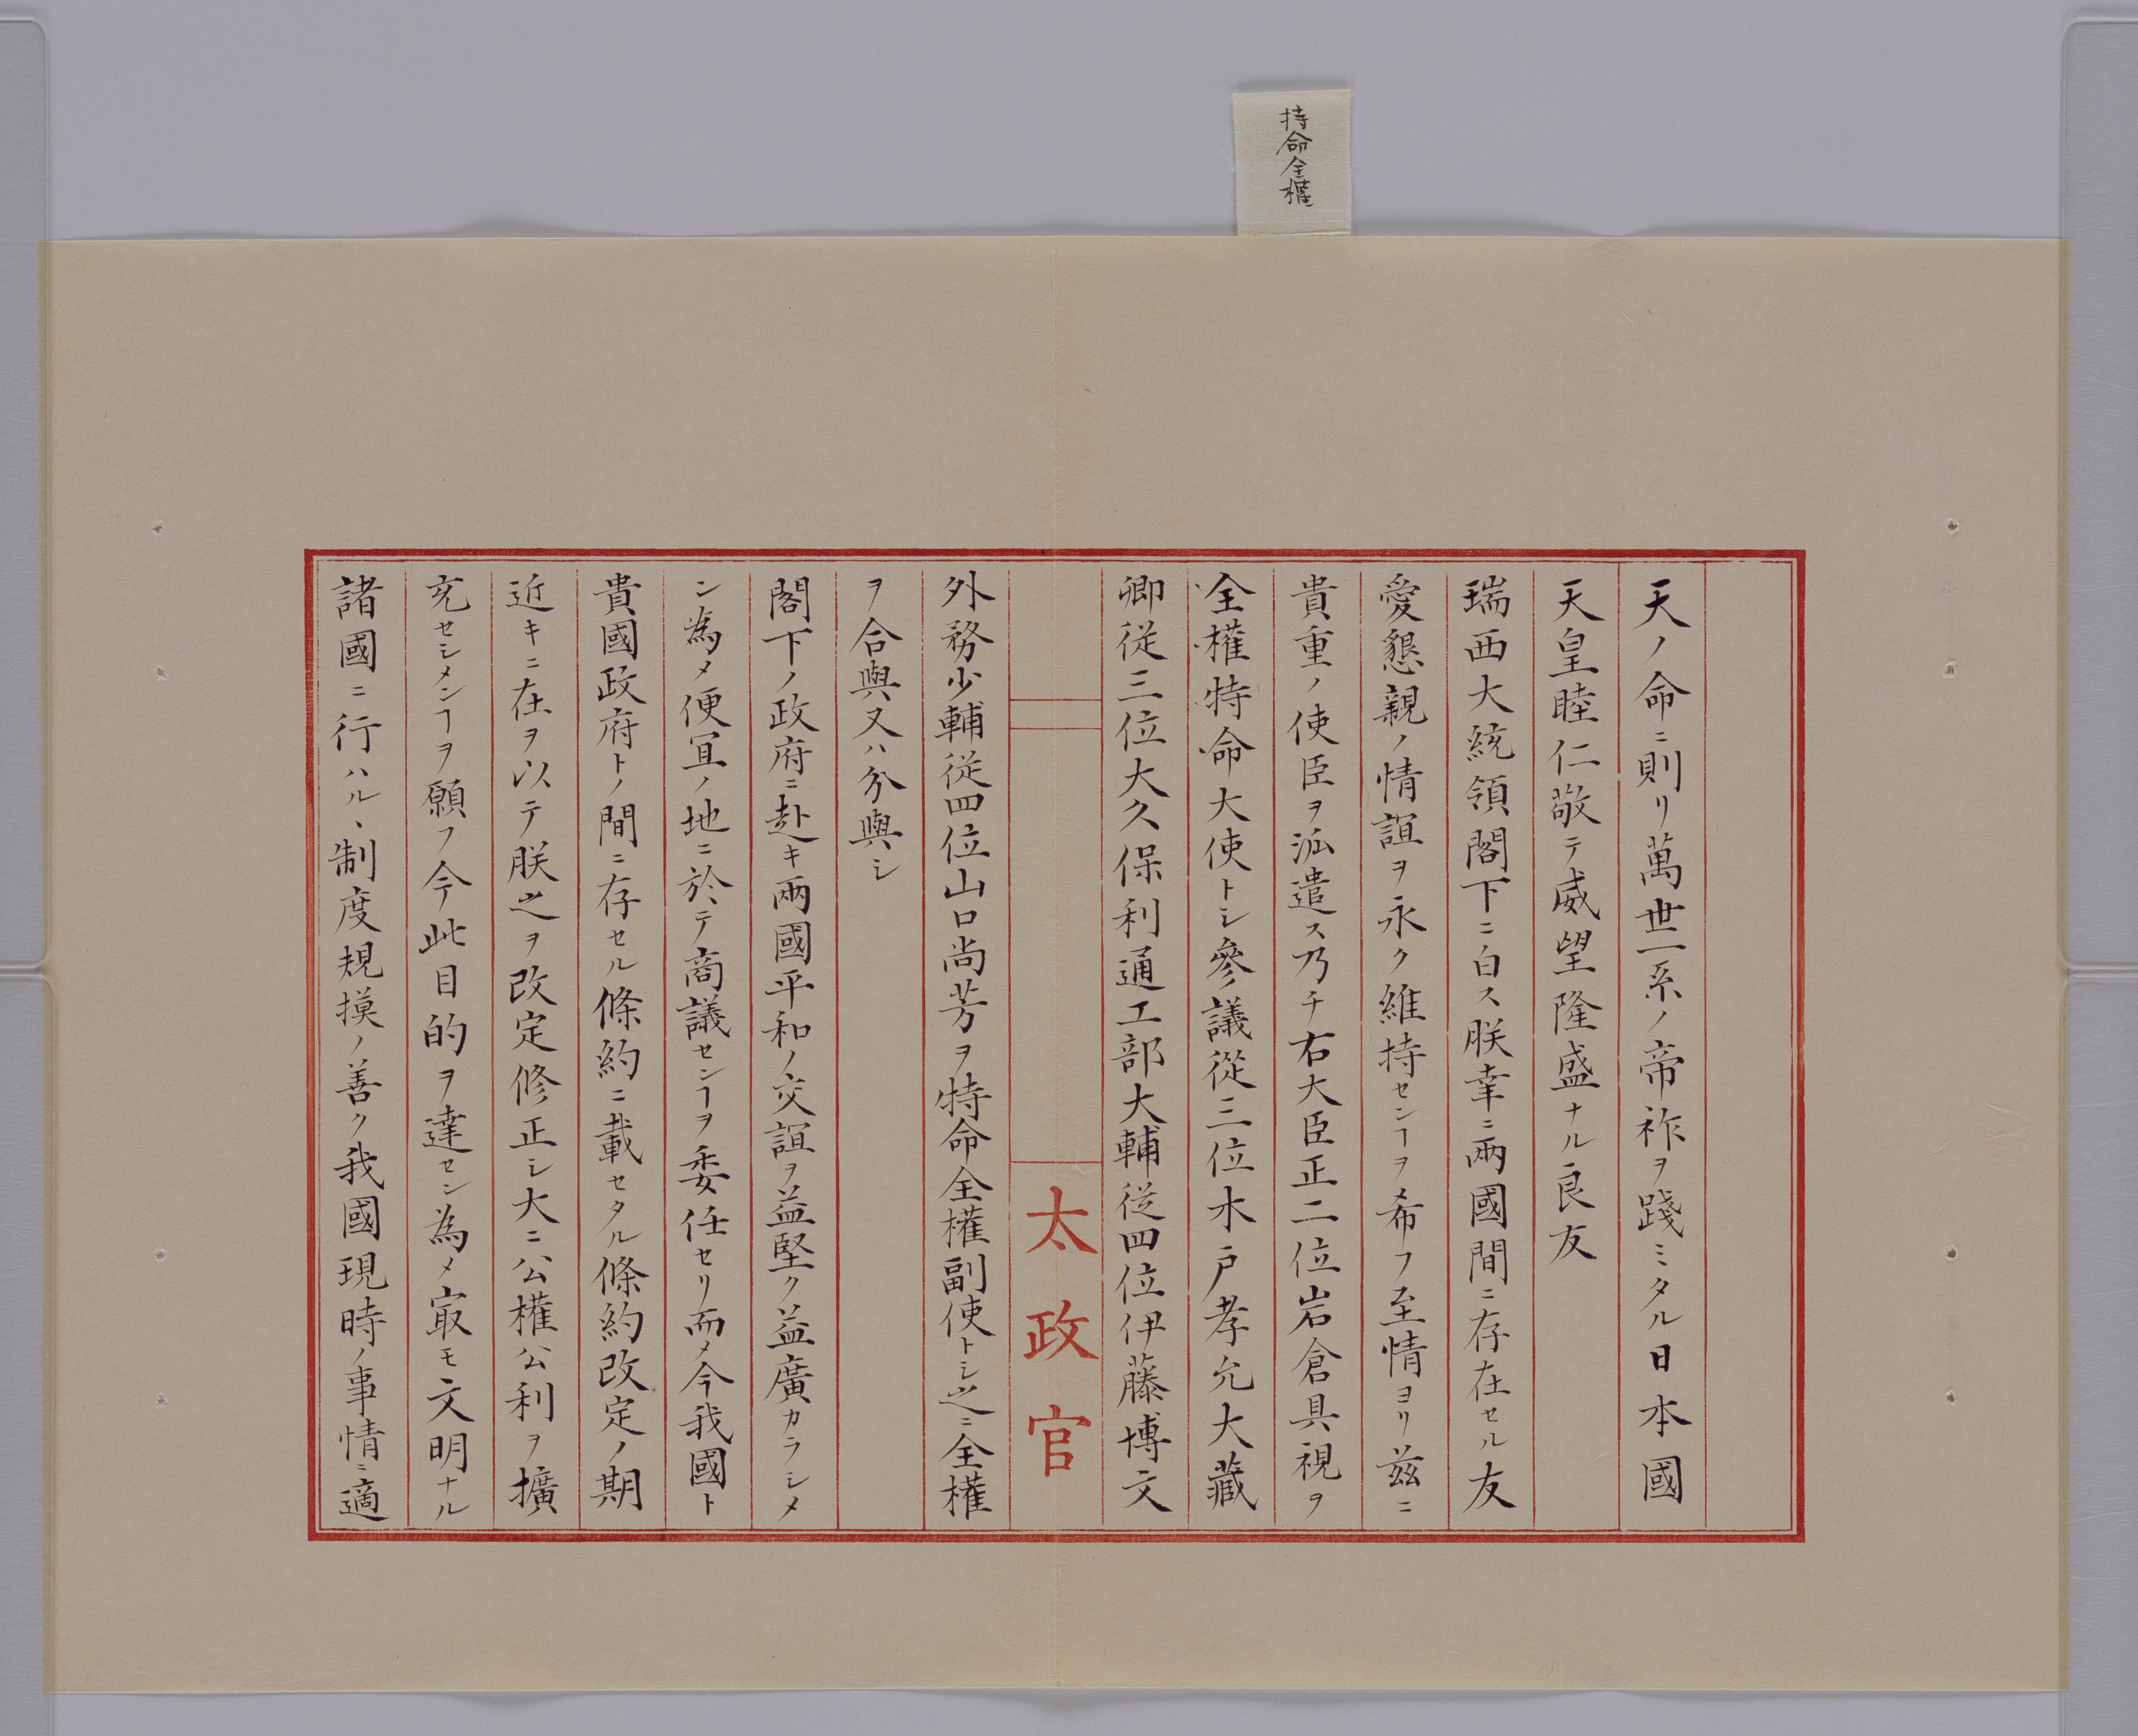 持命全權
天ノ命ニ則リ萬世一系ノ帝祚ヲ踐ミタル日本國
天皇睦仁敬テ威望隆盛ナル良友
瑞西大統領閣下ニ白ス朕幸ニ兩國間ニ存在セル友
愛懇親ノ情誼ヲ永ク維持センヿヲ希フ至情ヨリ茲ニ
貴重ノ使臣ヲ派遣ス乃チ右大臣正二位岩倉具視ヲ
全權特命大使トシ參議從三位木戸孝允大藏
卿從三位大久保利通工部大輔從四位伊藤博文
太政官
外務少輔從四位山口尚芳ヲ特命全權副使トシ之ニ全權
ヲ合與又ハ分與シ
閣下ノ政府ニ赴キ兩國平和ノ交誼ヲ益堅ク益廣カラシメ
ン為メ便宜ノ地ニ於テ商議センヿヲ委任セリ而メ今我國ト
貴國政府トノ間ニ存セル條約ニ載セタル條約改定ノ期
近キニ在ヲ以テ朕之ヲ改定修正シ大ニ公權公利ヲ擴
充セシメンヿヲ願フ今此目的ヲ達セン為メ㝡モ文明ナル
諸國ニ行ハルヽ制度規摸ノ善ク我國現時ノ事情ニ適